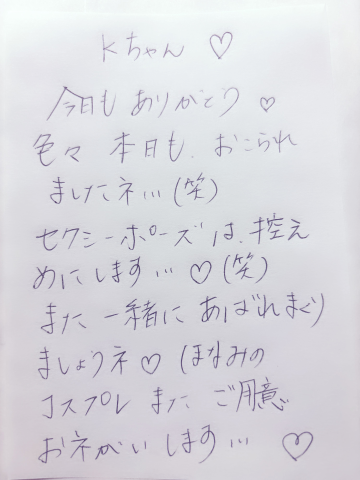 Kちゃん ♡
今日も ありがとう ♡
色々 本日も、おこられ
ましたネ…(笑)
セクシーポーズは、控え
めにします…♡(笑)
また 一緒に あばれまくり
ましょうネ♡ ほなみの
コスプレ また ご用意
おネがい します… ♡